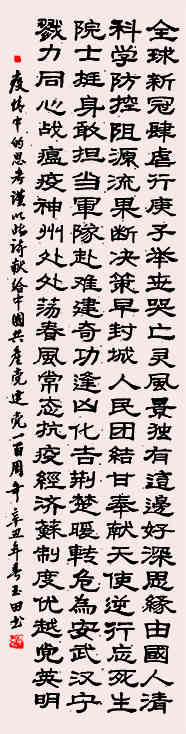 全球新冠肆虐行庚子举世哭亡灵風景独有這邊好深思緣由國人清
科学防控阻源流果断决策早封城人民团结甘奉献天使逆行忘死生
院士挺身敢担当軍隊赴难建奇功逢凶化吉荆楚暖轉危為安武汉宁
戮力同心战瘟疫神州处处荡春風常态抗疫經济蘇制度优越党英明
疫情中的思考谨以此诗献给中國共產党建党一百周年辛丑年春玉田书